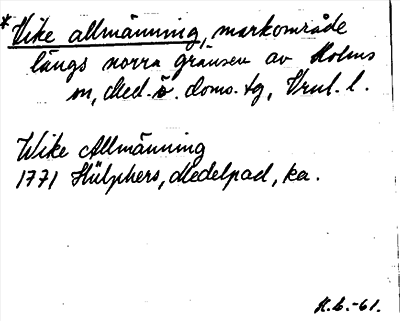 *Vike allmänning, markområde
längs norra gränsen av Holms
sn, Med. ö. doms. tg, Vrnl. l.
Wike Allmänning
1771 Hülphers, Medelpad, ka.
H.L.-61.